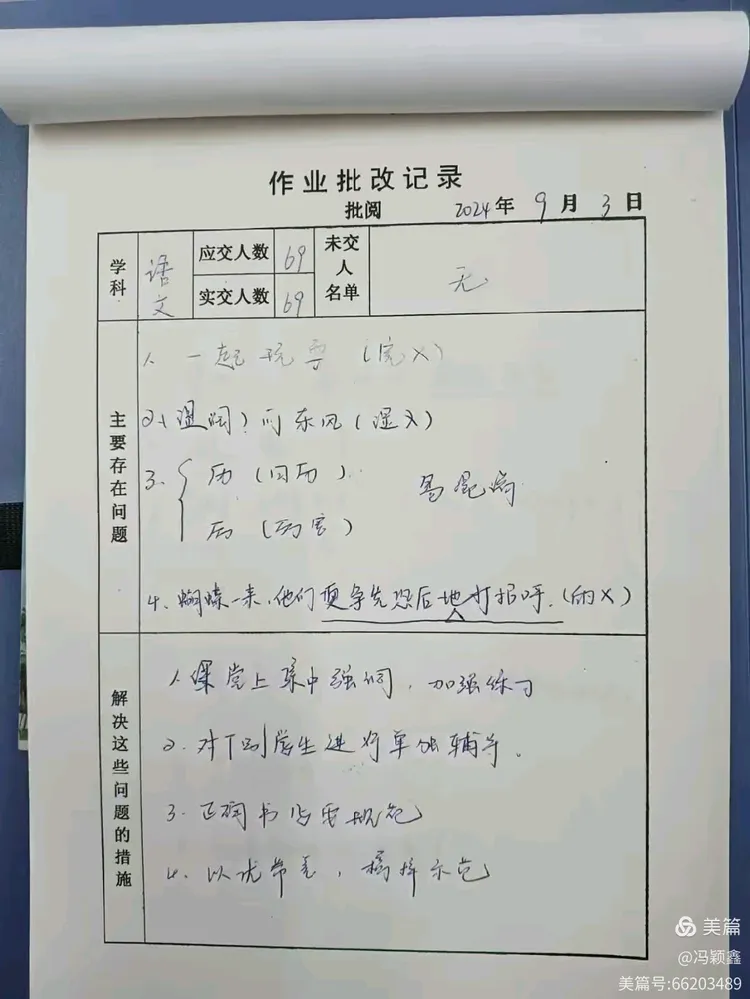 作业批改记录
批阅 2024年 9月 3日
学科 语文 应交人数 69 未交人名单 无
实交人数 69
主要存在问题
1. 一起玩耍(完×)
2. (湿润)的东风(湿×)
3. 历(日历) 易混淆
厉(厉害)
4. 蝴蝶一来,他们便争先恐后地打招呼.(的×)
解决这些问题的措施
1. 课堂上集中强调,加强练习
2. 对个别学生进行单独辅导。
3. 正确书写要规范
4. 以优带差,榜样示范
美篇
@冯颖鑫
美篇号:66203489